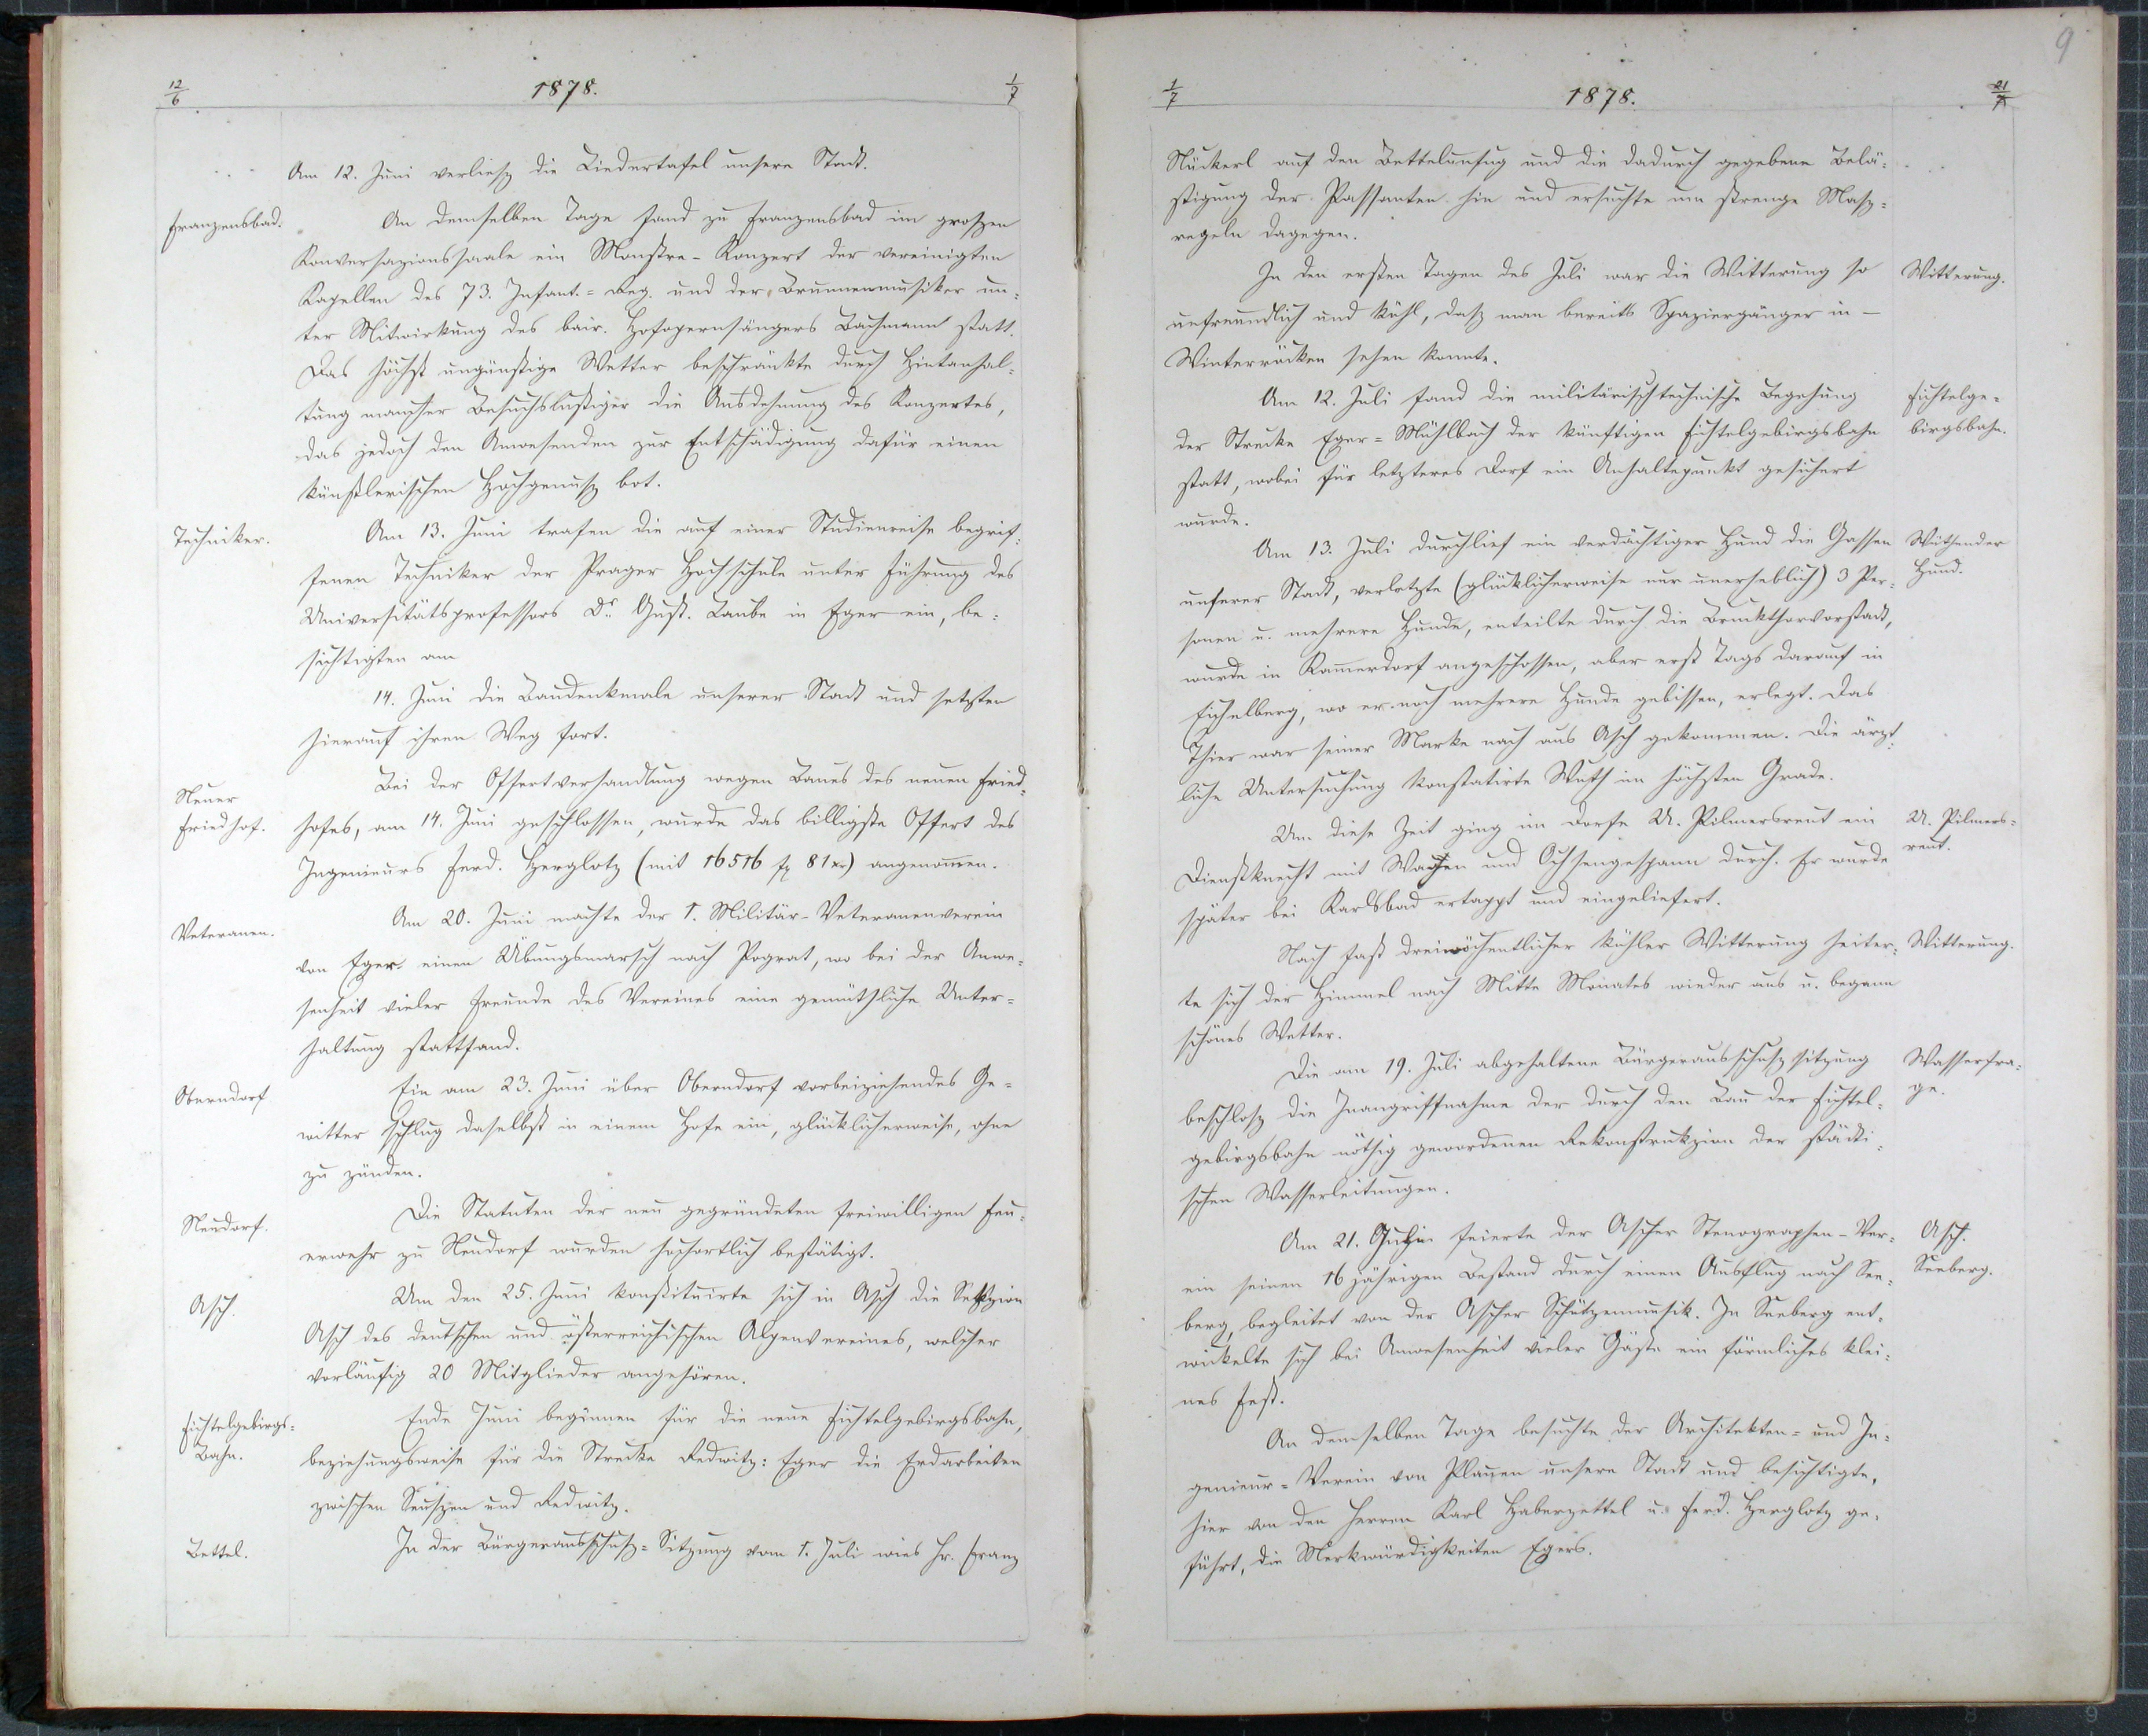 9
12/6
1878.
1/7
Am 12. Juni verliesz die Liedertafel unsere Stadt.
Franzensbad.
An demselben Tage fand zu Franzensbad im groszen
Konversazionssaale ein Monstre-Konzert der vereinigten
Kapellen des 73. Infant.=Reg. und der Brunnenmusiker un-
ter Mitwirkung des bair. Hofopernsängers Bachmann statt.
Das höchst ungünstige Wetter beschränkte durch Hintanhal-
tung mancher Besuchslustiger die Ausdehnung des Konzertes,
das jedoch den Anwesenden zur Entschädigung dafür einen
künstlerischen Hochgenusz bot.
Techniker.
Am 13. Juni trafen die auf einer Studienreise begrif-
fenen Techniker der Prager Hochschule unter Führung des
Universitätsprofessors Dr. Gust. Laube in Eger ein, be-
sichtigten am
14. Juni die Baudenkmale unserer Stadt und setzten
hierauf ihren Weg fort.
Neuer
Friedhof.
Bei der Offertverhandlung wegen Baues des neuen Fried-
hofes, am 14. Juni geschlossen, wurde das billigste Offert des
Ingenieurs Ferd. Herglotz (mit 16516 fl 81 xr) angenommen.
Veteranen.
Am 20. Juni machte der 1. Militär-Veteranenverein
von Eger einen Übungsmarsch nach Pograt, wo bei der Anwe-
senheit vieler Freunde des Vereines eine gemüthliche Unter-
haltung stattfand.
Oberndorf
Ein am 23. Juni über Oberndorf vorbeiziehendes Ge-
witter schlug daselbst in einem Hofe ein, glücklicherweise, ohne
zu zünden.
Neudorf.
Die Statuten der neu gegründeten freiwilligen Feu-
erwehr zu Neudorf wurden hochortlich bestätigt.
Asch.
Um den 25. Juni konstituirte sich in Asch die Sekzion
Asch des deutschen und österreichischen Alpenvereines, welcher
vorläufig 20 Mitglieder angehören.
Fichtelgebirgs-
Bahn.
Ende Juni beginnen für die neue Fichtelgebirgsbahn,
beziehungsweise für die Strecke Redwitz: Eger die Erdarbeiten
zwischen Seuszen und Redwitz.
Bettel.
In der Bürgerausschusz=Sitzung vom 1. Juli wies Hr. Franz
1/7
1878.
21/7
Nückerl auf den Bettelunfug und die dadurch gegebene Belä-
stigung der Passanten hin und ersuchte um strenge Masz-
regeln dagegen.
In den ersten Tagen des Juli war die Witterung so
Witterung.
unfreundlich und kühl, dasz man bereits Spaziergänger in –
Winterröcken sehen konnte.
Am 12. Juli fand die militärischtechnische Begehung
Fichtelge-
der Strecke Eger=Mühlbach der künftigen Fichtelgebirgsbahn
birgsbahn.
statt, wobei für letzteres Dorf ein Anhaltepunkt gesichert
wurde.
Am 13. Juli durchlief ein verdächtiger Hund die Gassen
Wüthender
unserer Stadt, verletzte (glücklicherweise nur unerheblich) 3 Per-
Hund.
sonen u. mehrere Hunde, enteilte durch die Bruckthorvorstadt,
wurde in Kammerdorf angeschossen, aber erst Tags darauf in
Eichelberg, wo er noch mehrere Hunde gebissen, erlegt. Das
Thier war seiner Marke nach aus Asch gekommen. Die ärzt-
liche Untersuchung konstatirte Wuth im höchsten Grade.
Um diese Zeit ging im Dorfe U. Pilmersreut ein
U. Pilmers-
reut.
Dienstknecht mit Wagen und Ochsengespann durch. Er wurde
später bei Karlsbad ertappt und eingeliefert.
Nach fast dreiwöchentlicher kühler Witterung heiter-
Witterung.
te sich der Himmel nach Mitte Monates wieder aus u. begann
schönes Wetter.
Die am 19. Juli abgehaltene Bürgerausschuszsitzung
Wasserfra-
ge.
beschlosz die Inangriffnahme der durch den Bau der Fichtel-
gebirgsbahn nöthig gewordenen Rekonstrukzion der städti-
schen Wasserleitungen.
Am 21. Juli feierte der Ascher Stenographen-Ver-
Asch.
ein seinen 16 jährigen Bestand durch einen Ausflug nach See-
Seeberg.
berg, begleitet von der Ascher Schützenmusik. In Seeberg ent-
wickelte sich bei Anwesenheit vieler Gäste ein förmliches klei-
nes Fest.
An demselben Tage besuchte der Architekten= und In-
genieur=Verein von Plauen unsere Stadt und besichtigte,
hier von den Herren Karl Haberzettel u. Ferd. Herglotz ge-
führt, die Merkwürdigkeiten Egers.